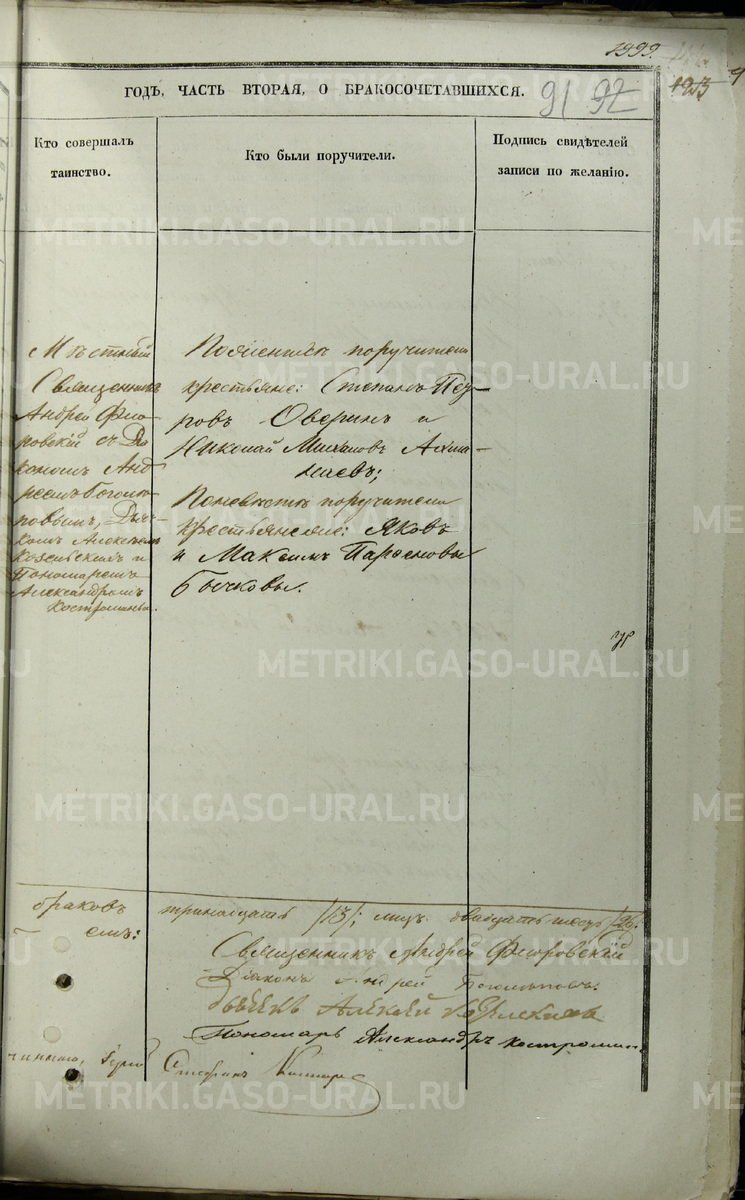 1999.
1213
ГОДЪ, ЧАСТЬ ВТОРАЯ, О БРАКОСОЧЕТАВШИХСЯ.
91 92
Кто совершалъ
таинство.
Кто были поручители.
Подпись свидѣтелей
записи по желанію.
Мѣстный
Священникъ
Андрей Фло-
ровскій съ Діа
кономъ Анд
реемъ Боголю-
повымъ, Дьяч-
комъ Алексѣемъ
и
Пономаремъ
Александромъ
Костроминымъ.
По женихѣ поручители
крестьяне: Степанъ Пет-
ровъ Оверинъ и
Николай Михаиловъ Ахма-
наевъ;
По невѣстѣ поручители
крестьянские: Яковъ
и Максимъ Парѳеновы
Бычковы.
браковъ тринадцать /13/; лицъ двадцать шесть /26/:
Священникъ Андрей Флоровскій
Діаконъ Андрей
Дьячекъ Алексѣй
Пономарь Александръ Костромин
Стефанъ
METRIKI.GASO-URAL.RU